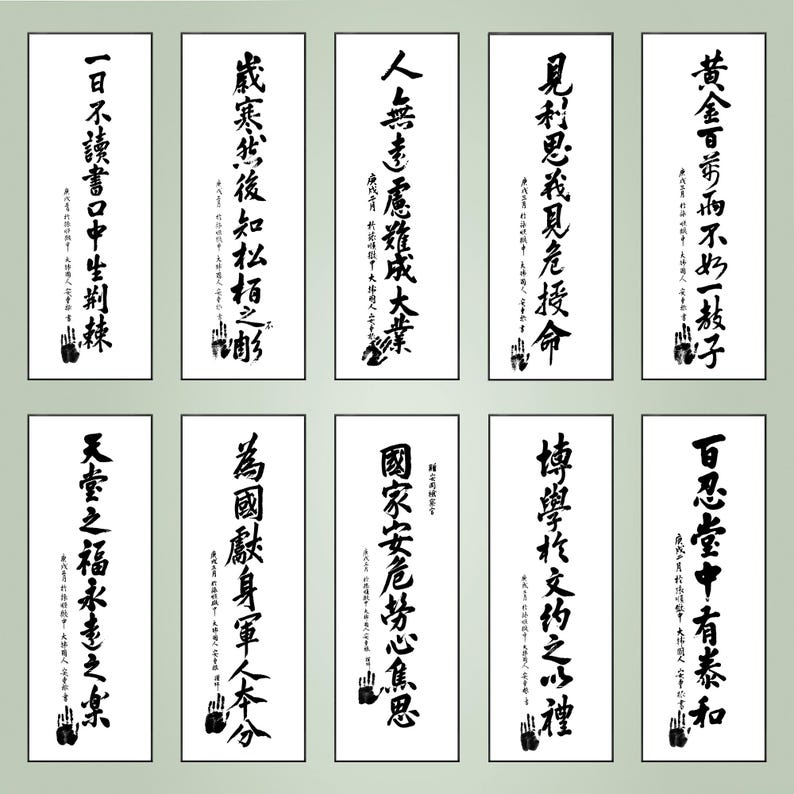 一日不讀書口中生荊棘
庚戌三月 於旅順獄中 大韓國人 安重根 書
歲寒然後知松栢之不彫
庚戌三月 於旅順獄中 大韓國人 安重根 書
人無遠慮難成大業
庚戌二月 於旅順獄中 大韓國人 安重根 書
見利思義見危授命
庚戌三月 於旅順獄中 大韓國人 安重根 書
黃金百萬兩不如一敎子
庚戌三月 於旅順獄中 大韓國人 安重根 書
天堂之福永遠之樂
庚戌三月 於旅順獄中 大韓國人 安重根 書
為國獻身軍人本分
庚戌三月 於旅順獄中 大韓國人 安重根 謹拜
贈安岡檢察官
國家安危勞心焦思
庚戌三月 於旅順獄中 大韓國人 安重根 謹拜
博學於文約之以禮
庚戌三月 於旅順獄中 大韓國人 安重根 書
百忍堂中有泰和
庚戌二月 於旅順獄中 大韓國人 安重根 書